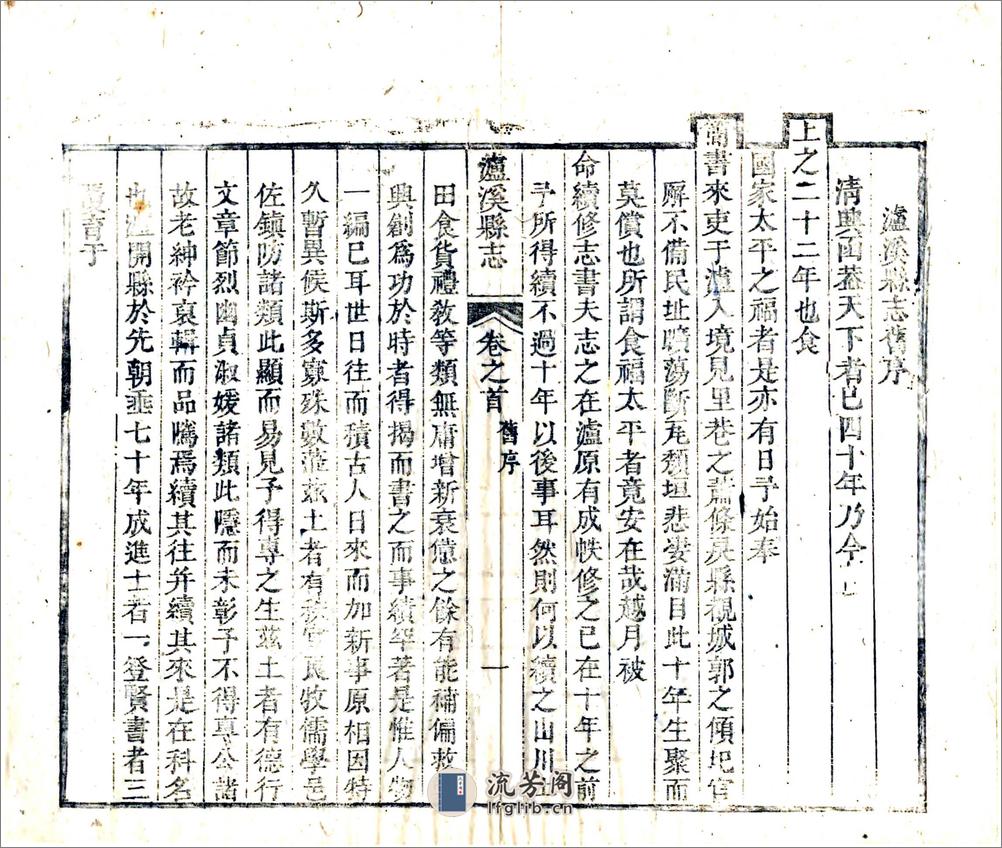 瀘溪縣志舊序
清興函蓋天下者已四十年乃今
上之二十二年也食
國家太平之福者是亦有日予始奉
簡書來吏于瀘入境見里巷之蕭條吳縣視城郭之傾圮官
廨不備民址曠蕩斷瓦頹垣悲婁滿目此十年生聚而
莫償也所謂食福太平者竟安在哉越月被
命續修志書夫志之在瀘原有成帙修之已在十年之前
予所得續不過十年以後事耳然則何以續之山川
瀘溪縣志
卷之首
舊序
一
田食貨禮教等類無庸增新衰億之餘有能補偏救
興創為功於時者得揭而書之而事績罕著是惟人物
一編已耳世日往而積古人日來而加新事原相因特
久暫異候斯多寡殊數蒞茲土者有秩官民牧儒學邑
佐鎮防諸類此顯而易見予得專之生茲土者有德行
文章節烈幽貞淑媛諸類此隱而未彰予不得專公諸
故老紳衿裒輯而品騭焉續其往并續其來是在科名
也瀘開縣於先朝垂七十年成進士者一登賢書者三
于
流芳阁
lfglib.cn